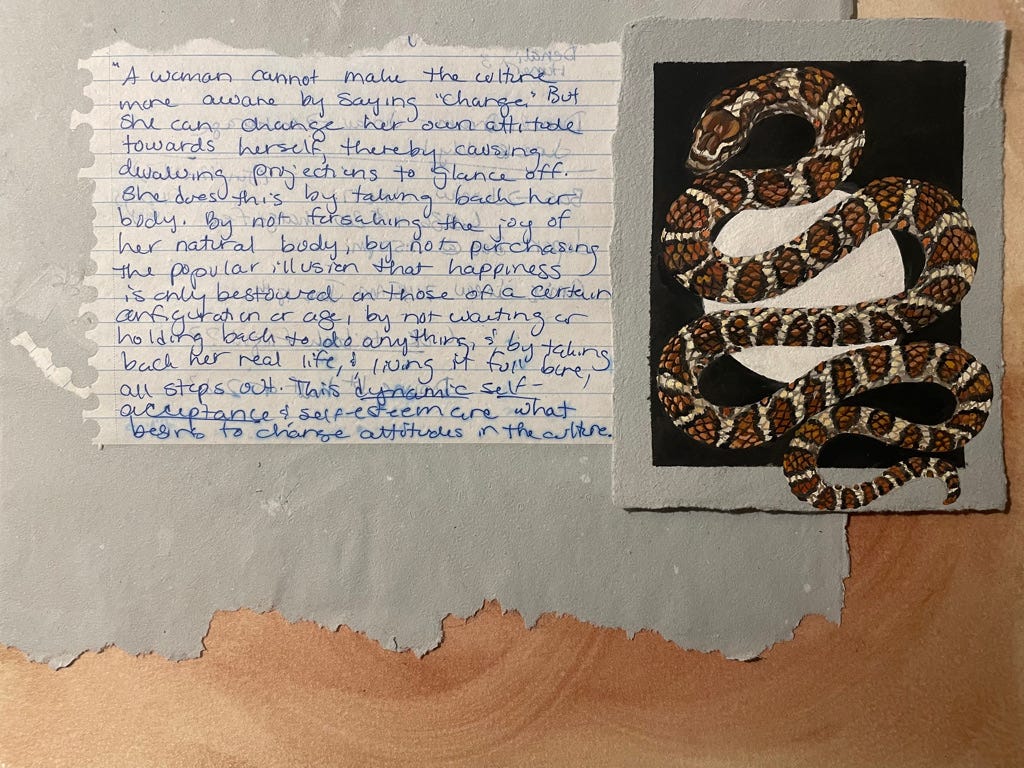 "A woman cannot make the culture
more aware by saying "Change." But
she can change her own attitude
towards herself, thereby causing
devaluing projections to glance off.
She does this by taking back her
body. By not forsaking the joy of
her natural body, by not purchasing
the popular illusion that happiness
is only bestowed on those of a certain
configuration or age, by not waiting or
holding back to do anything, & by taking
back her real life, & living it full bore,
all stops out. This dynamic self-
acceptance & self-esteem are what
begins to change attitudes in the culture.